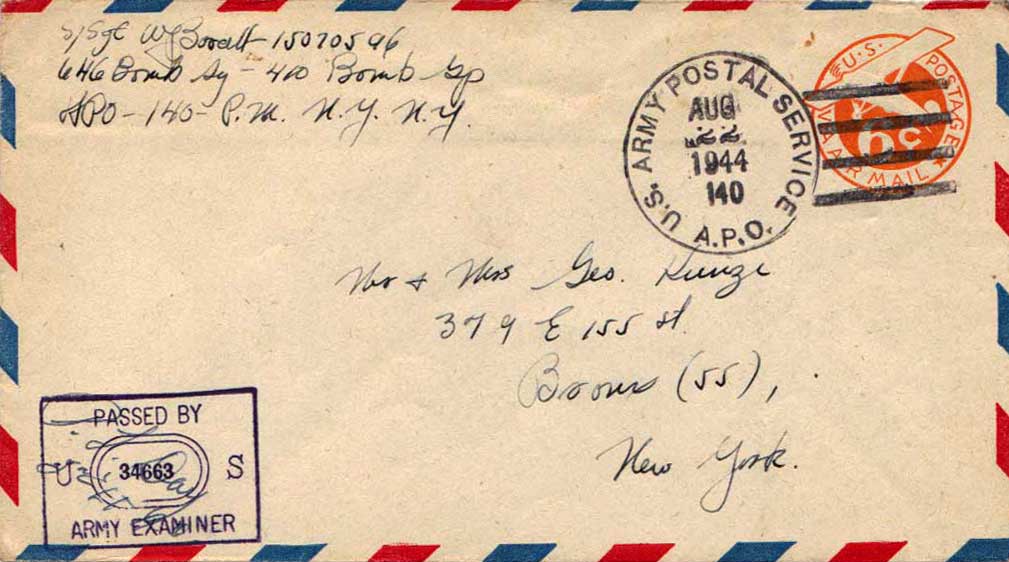 S/Sgt W J Boralt - 15070596
646 Bomb Sq - 410 Bomb Gp
APO - 140 - P.M. N.Y. N.Y.
U.S. ARMY POSTAL SERVICE
AUG
22
1944
140
A.P.O.
U.S. POSTAGE
6¢
VIA AIR MAIL
Mr & Mrs Geo. Kunze
379 E 155 St.
Bronx (55),
New York.
PASSED BY
U 34663 S
ARMY EXAMINER